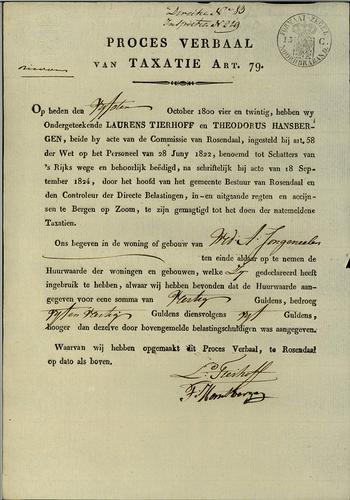 Directie No. 53
Inspectie No. 229
FORMAAT ZEGEL
15 C
NOORDBRABAND
PROCES VERBAAL
VAN TAXATIE ART. 79.
Op heden den Vyfden October 1800 vier en twintig, hebben wy
Ondergeteekende LAURENS TIERHOFF en THEODORUS HANSBER-
GEN, beide by acte van de Commissie van Rosendaal, ingesteld bij art. 58
der Wet op het Personeel van 28 Juny 1822, benoemd tot Schatters van
's Rijks wege en behoorlijk beëdigd, na schriftelijk bij acte van 18 Sep-
tember 1824, door het hoofd van het gemeente Bestuur van Rosendaal en
den Controleur der Directe Belastingen, in-en uitgaande regten en accijn-
sen te Bergen op Zoom, te zijn gemagtigd tot het doen der natemeldene
Taxatien.
Ons begeven in de woning of gebouw van Wed. A. Jongeneelen
ten einde aldaar op te nemen de
Huurwaarde der woningen en gebouwen, welke Zy gedeclareerd heeft
ingebruik te hebben, alwaar wij hebben bevonden dat de Huurwaarde aan-
gegeven voor eene somma van Veertig Guldens, bedroeg
vyf en Veertig Guldens dienvolgens vyf Guldens,
hooger dan dezelve door bovengemelde belastingschuldigen was aangegeven.
Waarvan wij hebben opgemaakt dit Proces Verbaal, te Rosendaal
op dato als boven.
L. Tierhoff
T. Hansbergen